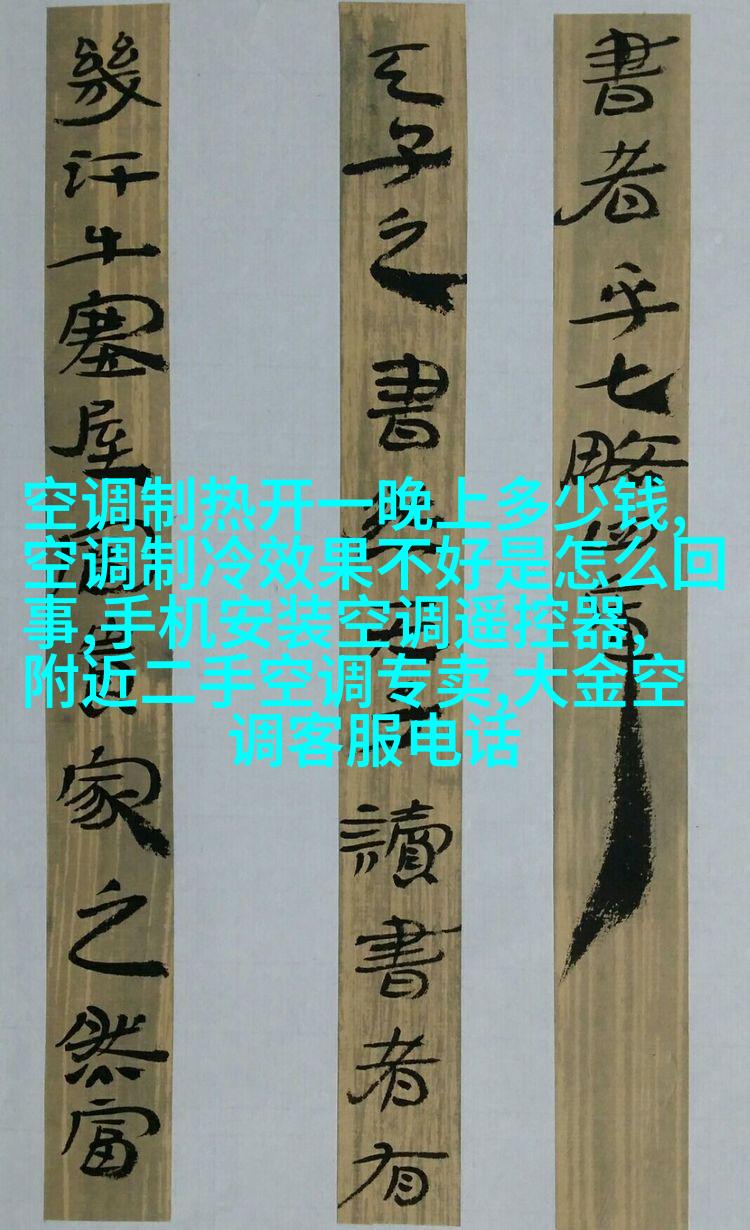 書者乎七略
天子之書讀書者有
幾汗牛塞屋家之然富
空调制热开一晚上多少钱,
空调制冷效果不好是怎么回
事,手机安装空调遥控器,
附近二手空调专卖,大金空
调客服电话